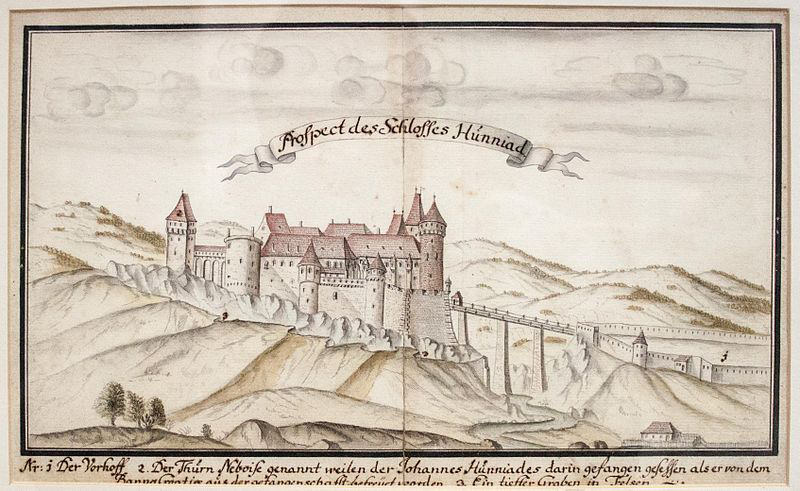 Prospect des Schlosses Húnniad
1
Nr: 1 Der Vorhoff 2. Der Thurn Neboise genannt weilen der Johannes Húnniades darin gefangen gesessen als er von dem
aus der gefangenschafft befreyet worden 3. Ein tieffer Graben in Felsen